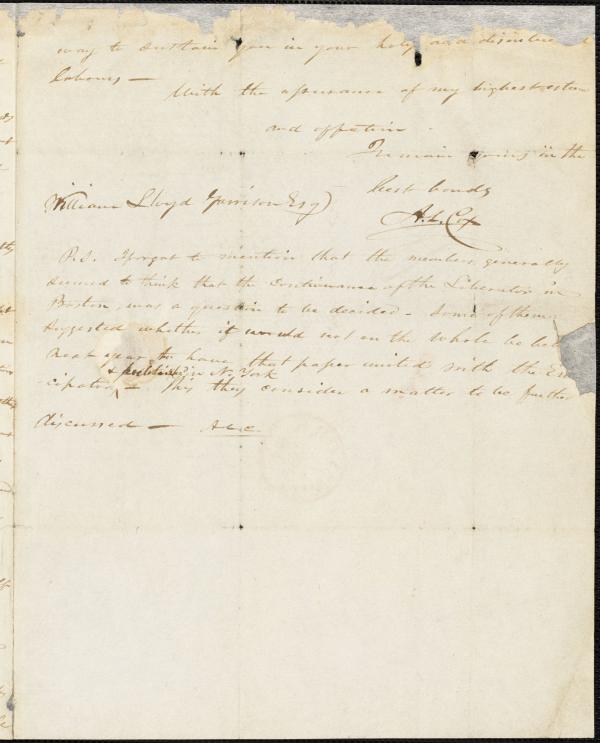 way to sustain you in your holy and disinter
labours —
With the assurance of my highest esteem
and affection.
I remain yours in the
best bonds
William Lloyd Garrison Esq)
A. L. Cox
P.S. I forgot to mention that the members generally
seemed to think that the continuance of the Liberator in
Boston, was a question to be decided – Some of them
suggested whether it would not on the whole be best
next year to have that paper united with the Eman
& published in N. York
cipator, — This they consider a matter to be further
discussed — A L C.